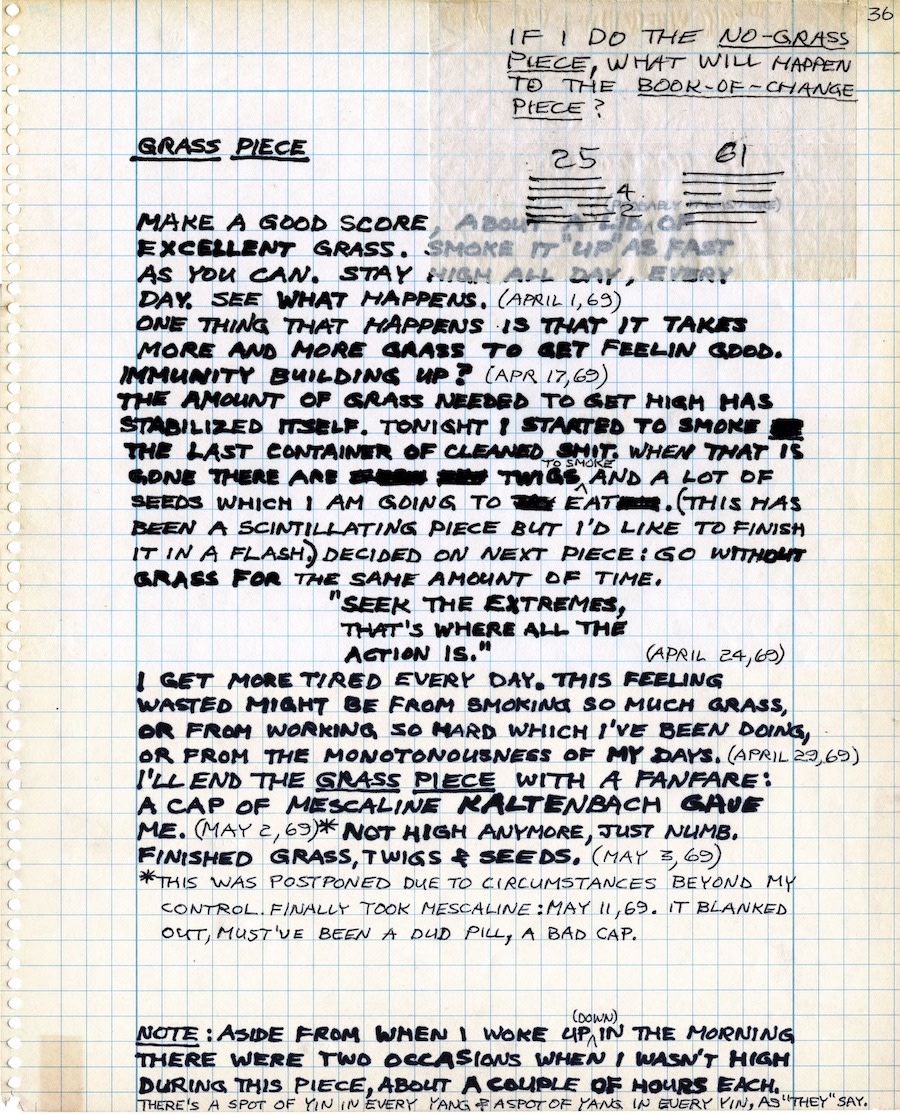 36
IF I DO THE NO-GRASS
PIECE, WHAT WILL HAPPEN
TO THE BOOK-OF-CHANGE
PIECE?
GRASS PIECE
25 61
4
2
(PROBABLY
MAKE A GOOD SCORE, ABOUT A LID OF
EXCELLENT GRASS. SMOKE IT UP AS FAST
AS YOU CAN. STAY HIGH ALL DAY, EVERY
DAY. SEE WHAT HAPPENS. (APRIL 1, 69)
ONE THING THAT HAPPENS IS THAT IT TAKES
MORE AND MORE GRASS TO GET FEELIN GOOD.
IMMUNITY BUILDING UP? (APR 17, 69)
THE AMOUNT OF GRASS NEEDED TO GET HIGH HAS
STABILIZED ITSELF. TONIGHT I STARTED TO SMOKE
THE LAST CONTAINER OF CLEANED SHIT. WHEN THAT IS
GONE THERE ARE TWIGS TO SMOKE AND A LOT OF
SEEDS WHICH I AM GOING TO EAT. (THIS HAS
BEEN A SCINTILLATING PIECE BUT I'D LIKE TO FINISH
IT IN A FLASH.) DECIDED ON NEXT PIECE: GO WITHOUT
GRASS FOR THE SAME AMOUNT OF TIME.
"SEEK THE EXTREMES,
THAT'S WHERE ALL THE
ACTION IS." (APRIL 24, 69)
I GET MORE TIRED EVERY DAY. THIS FEELING
WASTED MIGHT BE FROM SMOKING SO MUCH GRASS,
OR FROM WORKING SO HARD WHICH I'VE BEEN DOING,
OR FROM THE MONOTONOUSNESS OF MY DAYS. (APRIL 29, 69)
I'LL END THE GRASS PIECE WITH A FANFARE:
A CAP OF MESCALINE KALTENBACH GAVE
ME. (MAY 2, 69)* NOT HIGH ANYMORE, JUST NUMB.
FINISHED GRASS, TWIGS & SEEDS. (MAY 3, 69)
*THIS WAS POSTPONED DUE TO CIRCUMSTANCES BEYOND MY
CONTROL. FINALLY TOOK MESCALINE: MAY 11, 69. IT BLANKED
OUT, MUST'VE BEEN A DUD PILL, A BAD CAP.
NOTE: ASIDE FROM WHEN I WOKE UP (DOWN) IN THE MORNING
THERE WERE TWO OCCASIONS WHEN I WASN'T HIGH
DURING THIS PIECE, ABOUT A COUPLE OF HOURS EACH.
THERE'S A SPOT OF YIN IN EVERY YANG & A SPOT OF YANG IN EVERY YIN, AS "THEY" SAY.